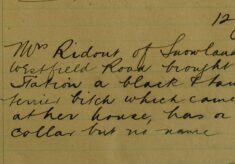 12
Mrs Ridout of Snowland
Westfield Road brought
Station a black & tan
terrier bitch which came
at her house, has a
collar but no name